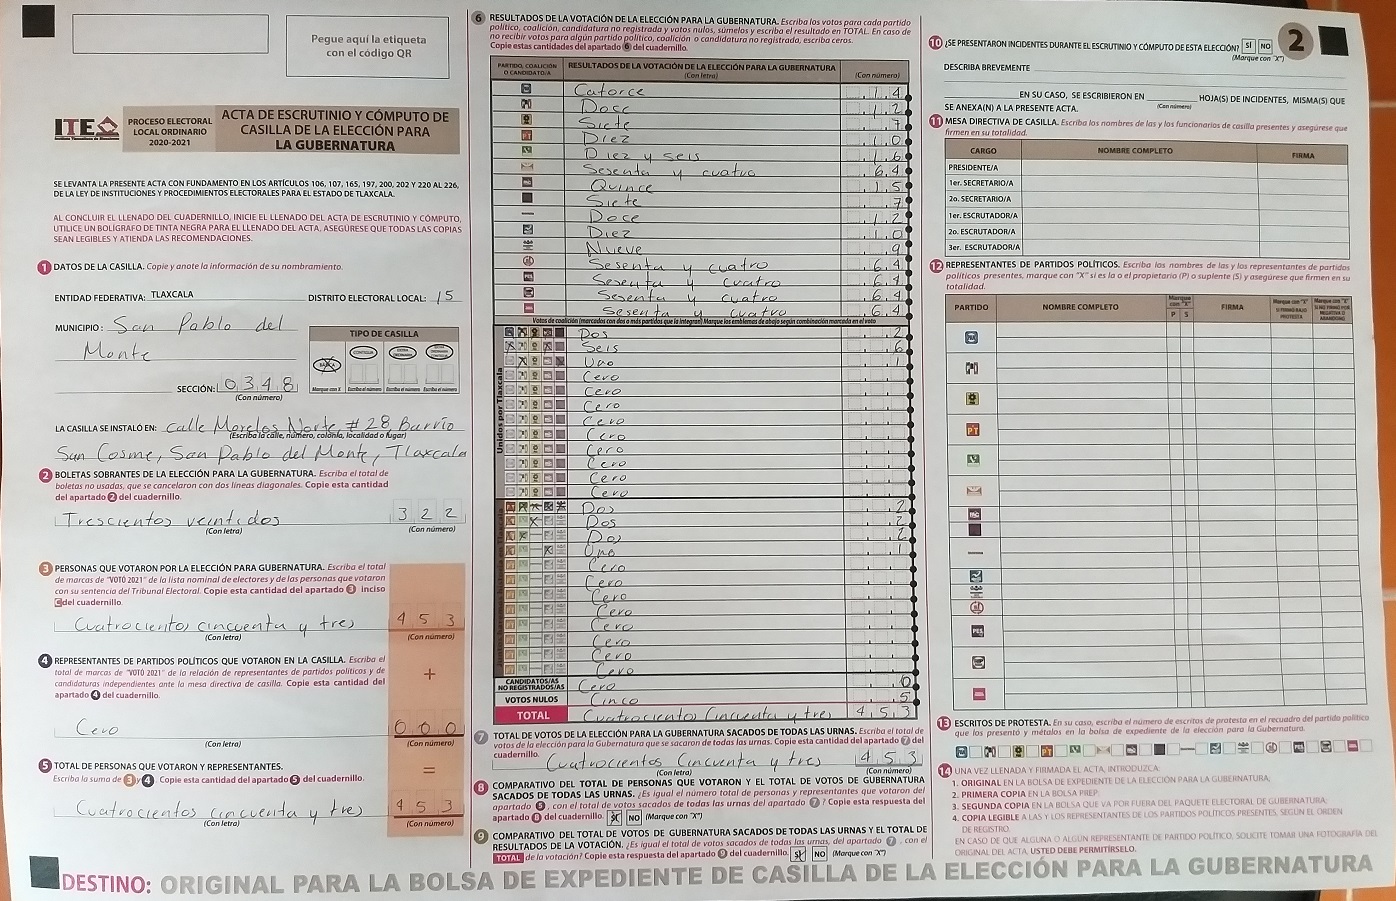 Pegue aquí la etiqueta
con el código QR
ITE
PROCESO ELECTORAL
LOCAL ORDINARIO
2020-2021
ACTA DE ESCRUTINIO Y CÓMPUTO DE
CASILLA DE LA ELECCIÓN PARA
LA GUBERNATURA
SE LEVANTA LA PRESENTE ACTA CON FUNDAMENTO EN LOS ARTÍCULOS 106, 107, 165, 197, 200, 202 Y 220 AL 226,
DE LA LEY DE INSTITUCIONES Y PROCEDIMIENTOS ELECTORALES PARA EL ESTADO DE TLAXCALA.
AL CONCLUIR EL LLENADO DEL CUADERNILLO, INICIE EL LLENADO DEL ACTA DE ESCRUTINIO Y CÓMPUTO,
UTILICE UN BOLÍGRAFO DE TINTA NEGRA PARA EL LLENADO DEL ACTA, ASEGÚRESE QUE TODAS LAS COPIAS
SEAN LEGIBLES Y ATIENDA LAS RECOMENDACIONES.
1 DATOS DE LA CASILLA. Copie y anote la información de su nombramiento.
ENTIDAD FEDERATIVA: TLAXCALA DISTRITO ELECTORAL LOCAL: 15
MUNICIPIO: San Pablo del
Monte
TIPO DE CASILLA
BÁSICA
Marque con X Escriba el número Escriba el número Escriba el número
SECCIÓN: 0348
(Con número)
LA CASILLA SE INSTALÓ EN: calle Morelos Norte, #28, Barrio
(Escriba la calle, número, colonia, localidad o lugar)
San Cosme, San Pablo del Monte, Tlaxcala
2 BOLETAS SOBRANTES DE LA ELECCIÓN PARA LA GUBERNATURA. Escriba el total de
boletas no usadas, que se cancelaron con dos líneas diagonales. Copie esta cantidad
del apartado 2 del cuadernillo.
Trescientos veintidos 322
(Con letra) (Con número)
3 PERSONAS QUE VOTARON POR LA ELECCIÓN PARA GUBERNATURA. Escriba el total
de marcas de "VOTÓ 2021" de la lista nominal de electores y de las personas que votaron
con su sentencia del Tribunal Electoral. Copie esta cantidad del apartado 3 inciso
C del cuadernillo.
Cuatrocientos cincuenta y tres 453
(Con letra) (Con número)
4 REPRESENTANTES DE PARTIDOS POLÍTICOS QUE VOTARON EN LA CASILLA. Escriba el
total de marcas de "VOTÓ 2021" de la relación de representantes de partidos políticos y de
candidaturas independientes ante la mesa directiva de casilla. Copie esta cantidad del
apartado 4 del cuadernillo.
+
Cero 000
(Con letra) (Con número)
5 TOTAL DE PERSONAS QUE VOTARON Y REPRESENTANTES.
Escriba la suma de 3 y 4. Copie esta cantidad del apartado 5 del cuadernillo.
=
Cuatrocientos cincuenta y tres 453
(Con letra) (Con número)
6 RESULTADOS DE LA VOTACIÓN DE LA ELECCIÓN PARA LA GUBERNATURA. Escriba los votos para cada partido
político, coalición, candidatura no registrada y votos nulos, súmelos y escriba el resultado en TOTAL. En caso de
no recibir votos para algún partido político, coalición o candidatura no registrada, escriba ceros.
Copie estas cantidades del apartado 6 del cuadernillo.
PARTIDO, COALICIÓN O CANDIDATO/A
RESULTADOS DE LA VOTACIÓN DE LA ELECCIÓN PARA LA GUBERNATURA
(Con letra) (Con número)
Catorce 14
Doce 12
Siete 7
PT Diez 10
Diez y seis 16
Sesenta y cuatro 64
Quince 15
Siete 7
Doce 12
Diez 10
Nueve 9
Sesenta y cuatro 64
PES Sesenta y cuatro 64
Sesenta y cuatro 64
Sesenta y cuatro 64
Votos de coalición (marcados con dos o más partidos que la integran) Marque los emblemas de abajo según combinación marcada en el voto
Unidos por Tlaxcala
Dos 2
Seis 6
Uno 1
Cero
Cero
Cero
Cero
Cero
Cero
Cero
Cero
Cero
Dos 2
Dos 2
Dos 2
Uno 1
Cero
Cero
Cero
Cero
Cero
Cero
Cero
Cero
CANDIDATOS/AS
NO REGISTRADOS/AS Cero 0
VOTOS NULOS Cinco 5
TOTAL Cuatrocientos Cincuenta y tres 453
7 TOTAL DE VOTOS DE LA ELECCIÓN PARA LA GUBERNATURA SACADOS DE TODAS LAS URNAS. Escriba el total de
votos de la elección para la Gubernatura que se sacaron de todas las urnas. Copie esta cantidad del apartado 7 del
cuadernillo.
Cuatrocientos Cincuenta y tres 453
(Con letra) (Con número)
8 COMPARATIVO DEL TOTAL DE PERSONAS QUE VOTARON Y EL TOTAL DE VOTOS DE GUBERNATURA
SACADOS DE TODAS LAS URNAS. ¿Es igual el número total de personas y representantes que votaron del
apartado 5, con el total de votos sacados de todas las urnas del apartado 7? Copie esta respuesta del
apartado 8 del cuadernillo. SÍ NO (Marque con "X")
9 COMPARATIVO DEL TOTAL DE VOTOS DE GUBERNATURA SACADOS DE TODAS LAS URNAS Y EL TOTAL DE
RESULTADOS DE LA VOTACIÓN. ¿Es igual el total de votos sacados de todas las urnas, del apartado 7, con el
TOTAL de la votación? Copie esta respuesta del apartado 9 del cuadernillo. SÍ NO (Marque con "X")
2
10 ¿SE PRESENTARON INCIDENTES DURANTE EL ESCRUTINIO Y CÓMPUTO DE ESTA ELECCIÓN? SÍ NO
(Marque con "X")
DESCRIBA BREVEMENTE
EN SU CASO, SE ESCRIBIERON EN HOJA(S) DE INCIDENTES, MISMA(S) QUE
(Con número)
SE ANEXA(N) A LA PRESENTE ACTA.
11 MESA DIRECTIVA DE CASILLA. Escriba los nombres de las y los funcionarios de casilla presentes y asegúrese que
firmen en su totalidad.
CARGO NOMBRE COMPLETO FIRMA
PRESIDENTE/A
1er. SECRETARIO/A
2o. SECRETARIO/A
1er. ESCRUTADOR/A
2o. ESCRUTADOR/A
3er. ESCRUTADOR/A
12 REPRESENTANTES DE PARTIDOS POLÍTICOS. Escriba los nombres de las y los representantes de partidos
políticos presentes, marque con "X" si es la o el propietario (P) o suplente (S) y asegúrese que firmen en su
totalidad.
PARTIDO NOMBRE COMPLETO Marque con "X" P S FIRMA
PT
PES
13 ESCRITOS DE PROTESTA. En su caso, escriba el número de escritos de protesta en el recuadro del partido político
que los presentó y métalos en la bolsa de expediente de la elección para la Gubernatura.
14 UNA VEZ LLENADA Y FIRMADA EL ACTA, INTRODUZCA:
1. ORIGINAL EN LA BOLSA DE EXPEDIENTE DE LA ELECCIÓN PARA LA GUBERNATURA;
2. PRIMERA COPIA EN LA BOLSA PREP;
3. SEGUNDA COPIA EN LA BOLSA QUE VA POR FUERA DEL PAQUETE ELECTORAL DE GUBERNATURA;
4. COPIA LEGIBLE A LAS Y LOS REPRESENTANTES DE LOS PARTIDOS POLÍTICOS PRESENTES, SEGÚN EL ORDEN
DE REGISTRO.
EN CASO DE QUE ALGUNA O ALGÚN REPRESENTANTE DE PARTIDO POLÍTICO, SOLICITE TOMAR UNA FOTOGRAFÍA DEL
ORIGINAL DEL ACTA, USTED DEBE PERMITÍRSELO.
DESTINO: ORIGINAL PARA LA BOLSA DE EXPEDIENTE DE CASILLA DE LA ELECCIÓN PARA LA GUBERNATURA